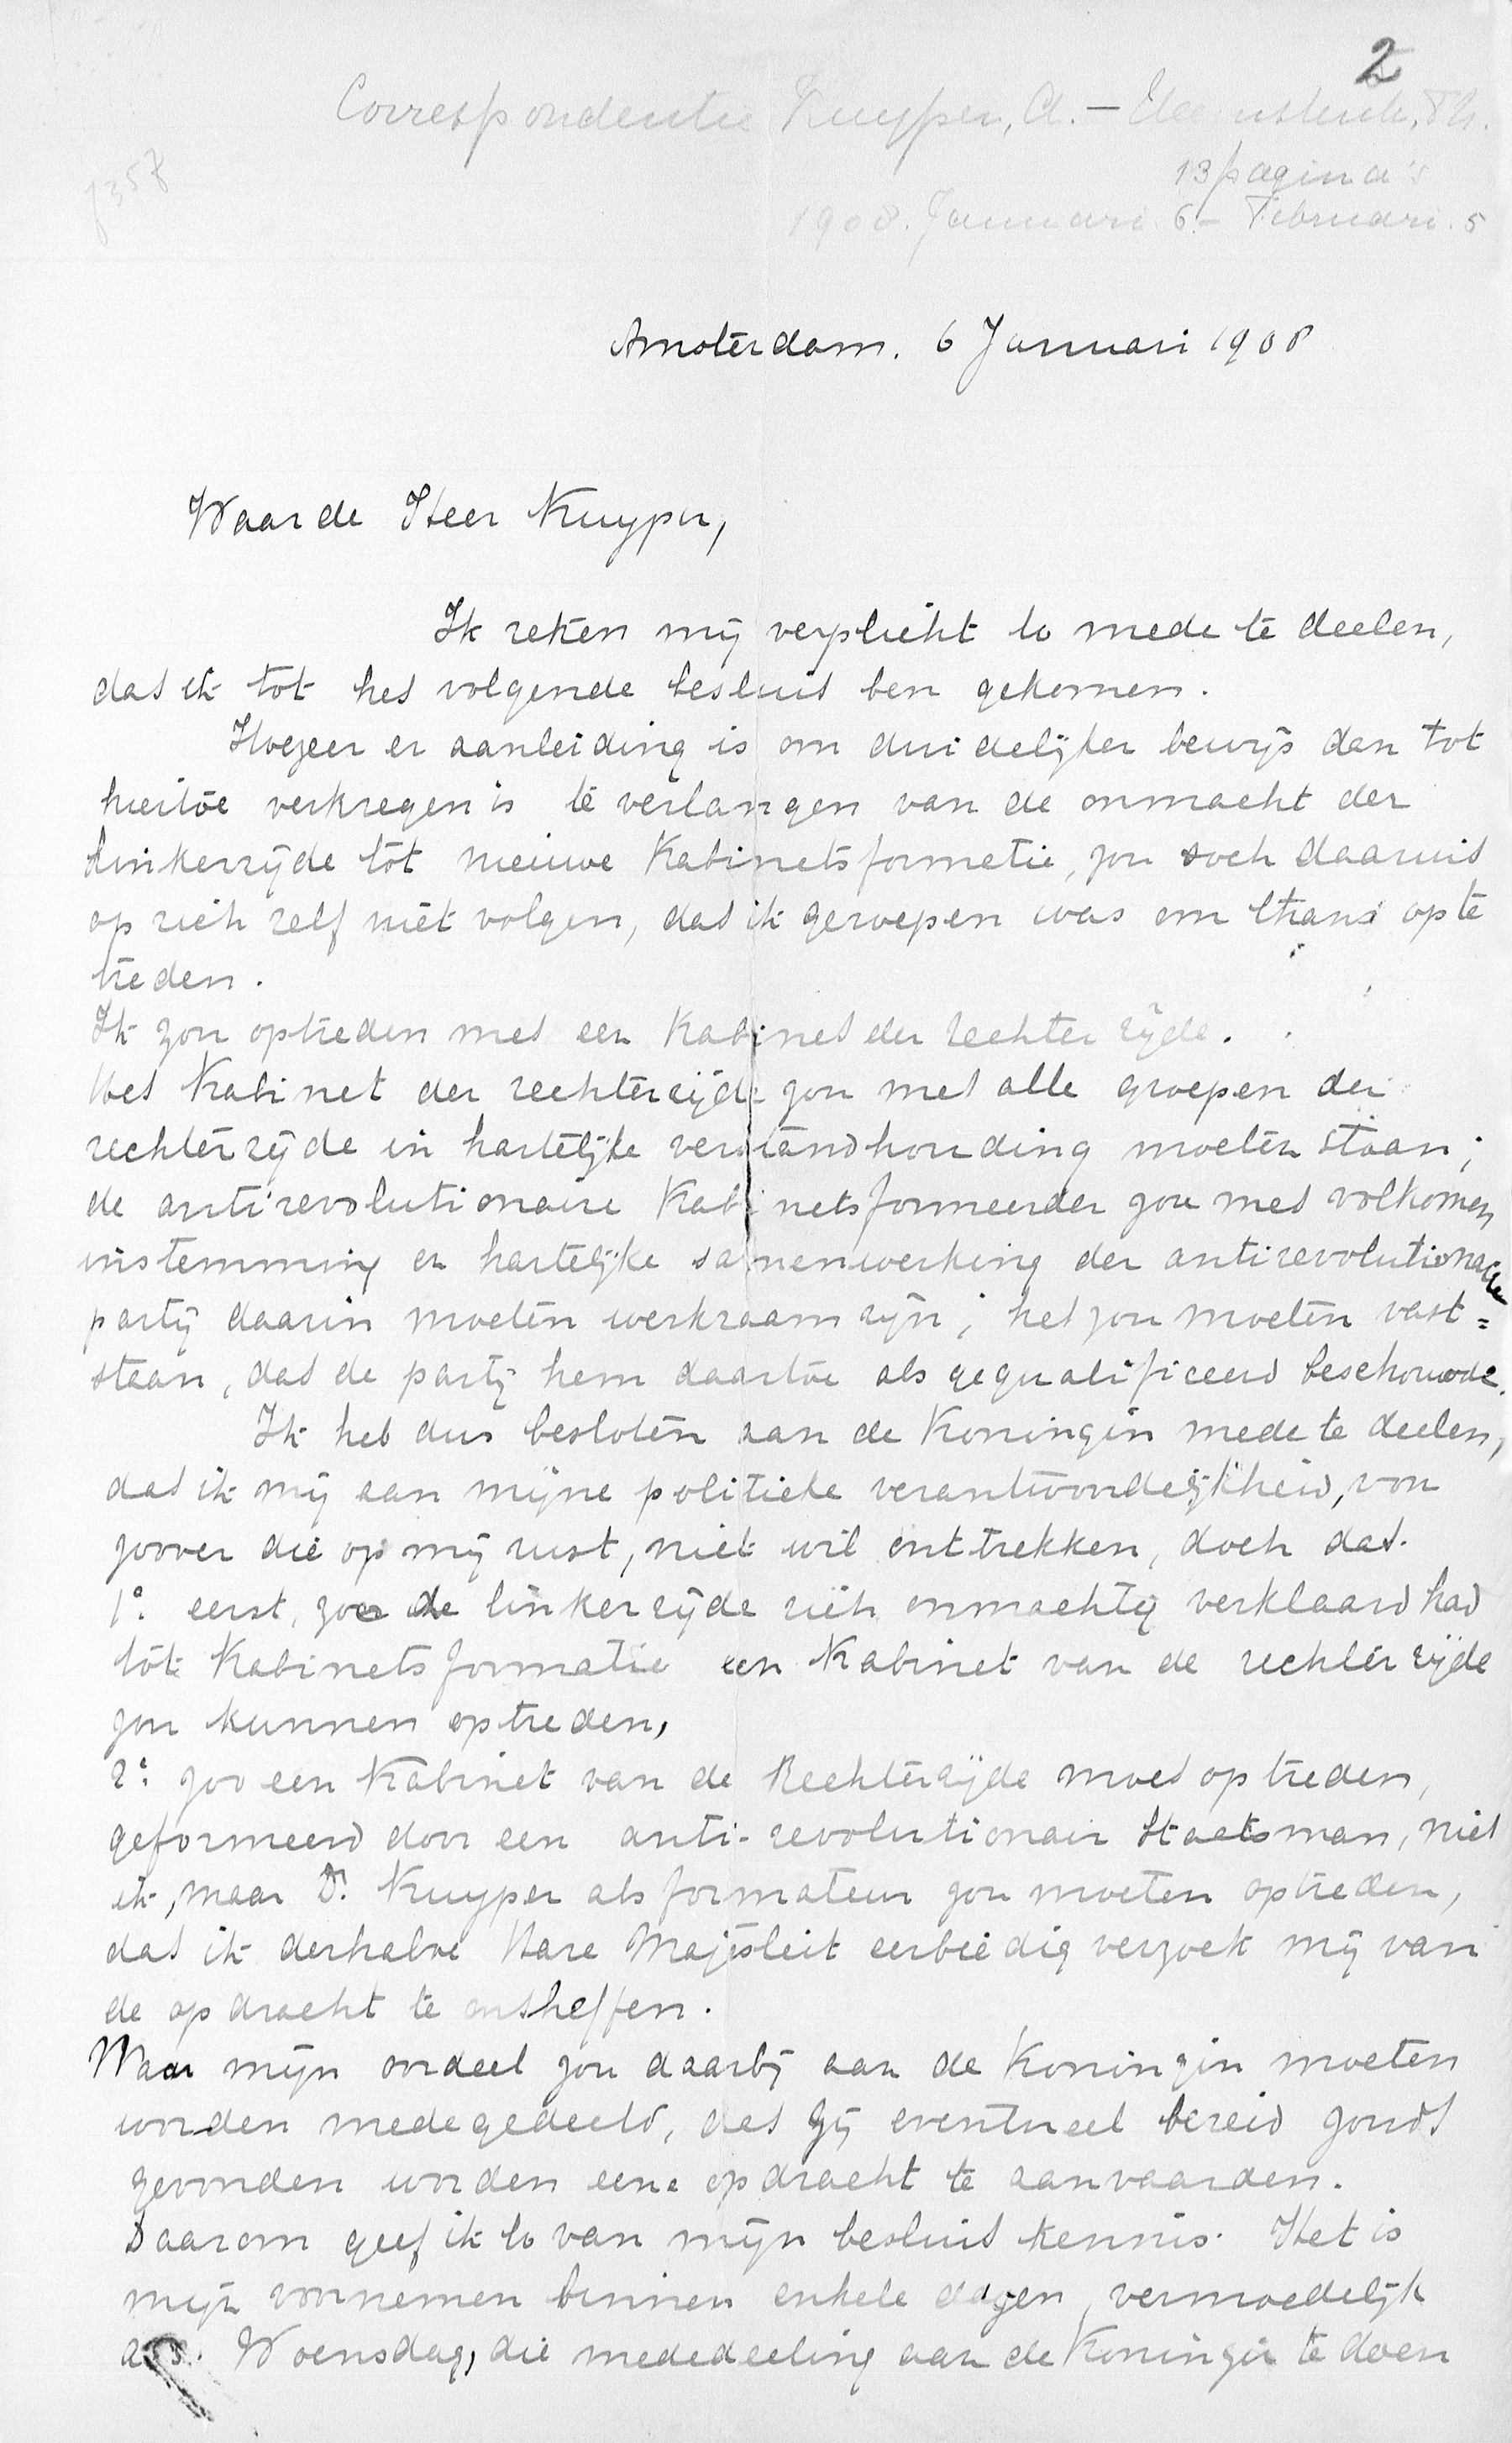 2
Correspondentie Kuyper, A. — Heemskerk, Th.
13 pagina's
1908. Januari 6 – Februari 5
Amsterdam. 6 Januari 1908
Waarde Heer Kuyper,
Ik reken mij verplicht U mede te deelen,
dat ik tot het volgende besluit ben gekomen.
Hoezeer er aanleiding is om duidelijker bewijs dan tot
hiertoe verkregen is te verlangen van de onmacht der
linkerzijde tot nieuwe Kabinetsformatie, zou toch daaruit
op zich zelf niet volgen, dat ik geroepen was om thans op te
treden.
Ik zou optreden met een Kabinet der rechter zijde.
Het Kabinet der rechterzijde zou met alle groepen der
rechterzijde in hartelijke verstandhouding moeten staan;
de antirevolutionaire Kabinetsformeerder zou met volkomen
instemming en hartelijke samenwerking der antirevolutionaire
partij daarin moeten werkzaam zijn; het zou moeten vast=
staan, dat de partij hem daartoe als gequalificeerd beschouwde.
Ik heb dus besloten aan de Koningin mede te deelen,
dat ik mij aan mijne politieke verantwoordelijkheid, voor
zoover die op mij rust, niet wil onttrekken, doch dat.
1°. eerst, zoo de linkerzijde zich onmachtig verklaard had
tot Kabinetsformatie een Kabinet van de rechterzijde
zou kunnen optreden,
2°. zoo een Kabinet van de Rechterzijde moet optreden,
geformeerd door een anti-revolutionair Staatsman, niet
ik, maar Dr. Kuyper als formateur zou moeten optreden,
dat ik derhalve Hare Majesteit eerbiedig verzoek mij van
de opdracht te ontheffen.
Naar mijn oordeel zou daarbij aan de Koningin moeten
worden medegedeeld, dat Gij eventueel bereid zoudt
gevonden worden eene opdracht te aanvaarden.
Daarom geef ik U van mijn besluit kennis. Het is
mijn voornemen binnen enkele dagen, vermoedelijk
a.s. Woensdag, die mededeeling aan de Koningin te doen